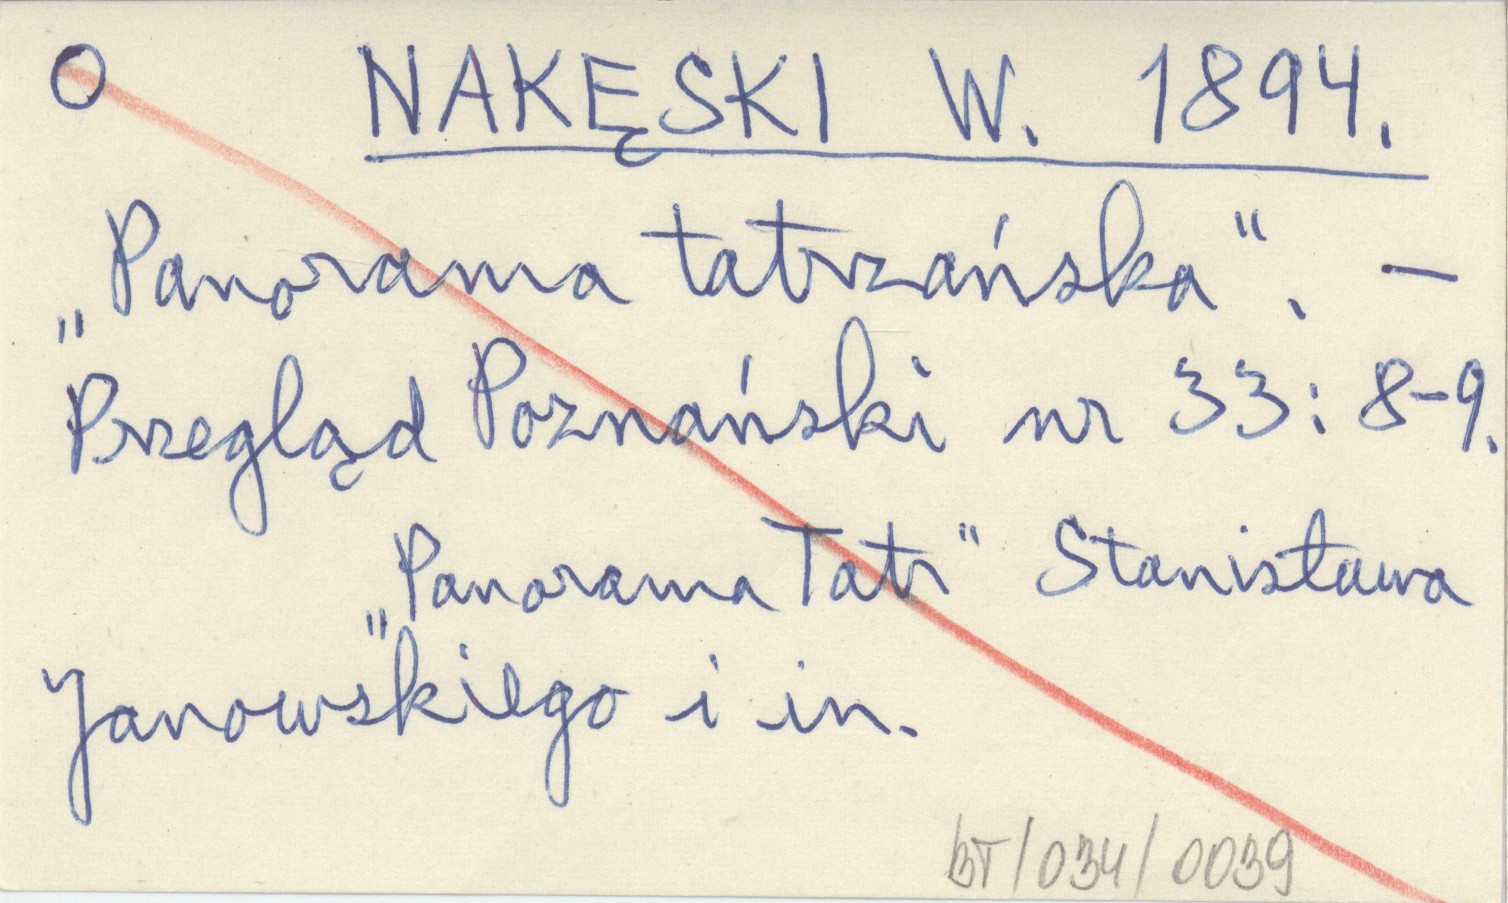 O NAKĘSKI W. 1894.
„Panorama tatrzańska“. —
Przegląd Poznański nr 33: 8-9.
„Panorama Tatr“ Stanisława
Janowskiego i in.
BT/034/0039